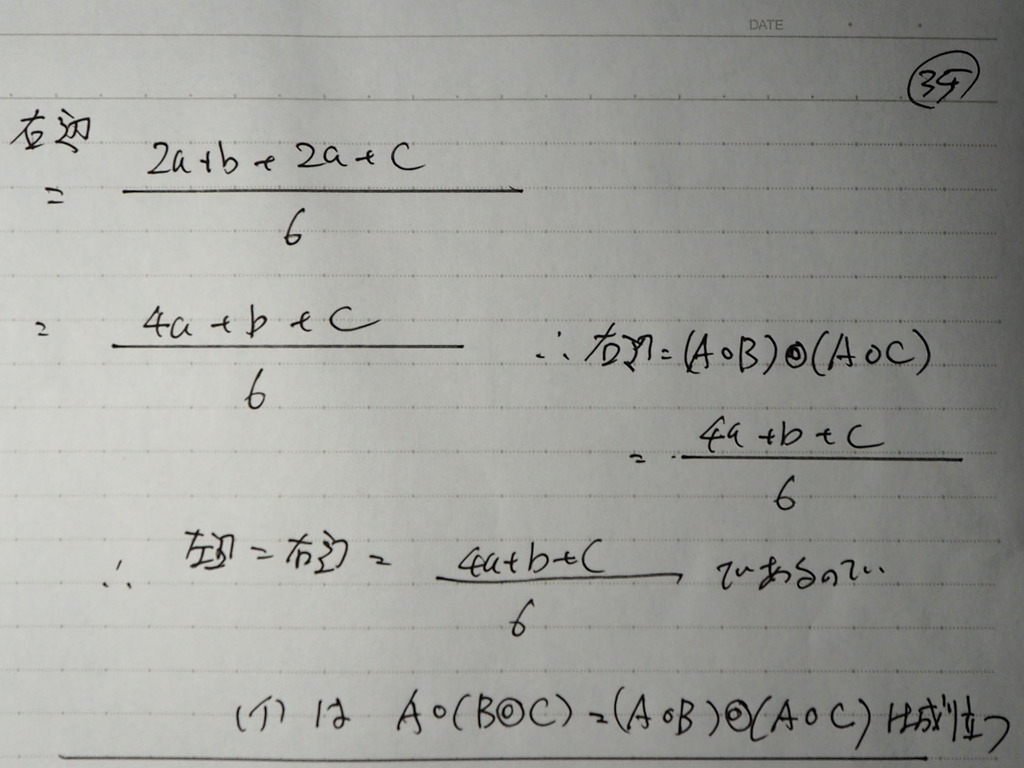 DATE
㉟
右辺
= (2a+b+2a+C)/6
= (4a+b+C)/6 ∴右辺=(A∘B)◎(A∘C)
= (4a+b+C)/6
∴ 左辺=右辺= (4a+b+C)/6 であるので
(イ)は A∘(B◎C)=(A∘B)◎(A∘C)は成り立つ